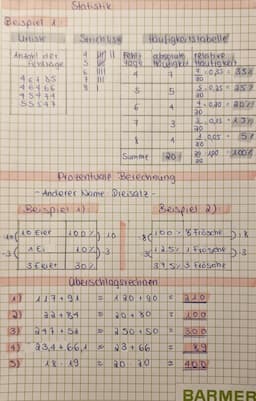 Statistik
Beispiel 1
Urliste Strichliste Häufigkeitstabelle
Anzahl der Fehltage
4 6 4 8 5
4 5 4 4 4
5 5 5 4 7
4 5 6 7 8
Fehltage absolute Häufigkeit relative Häufigkeit
4 7 = 0,35 = 35%
5 5 5/20 = 0,25 = 25%
6 4 4/20 = 0,20 = 20%
7 3 3/20 = 0,15 = 15%
8 1 1/20 = 0,05 = 5%
Summe 20 100 = 100%
Prozentuale Berechnung
- Anderer Name: Dreisatz -
Beispiel 1) Beispiel 2)
10 Eier 100% :10
1 Ei 10% ·3
3 Eier 30%
:8 100% 8 Frösche :8
·3 12,5% 1 Frosch ·3
37,5% 3 Frösche
Überschlagsrechnen
1) 117+91 = 120+90 = 210
2) 22+84 = 20+80 = 100
3) 247+51 = 250+50 = 300
4) 23,4+66,1 = 23+66 = 89
5) 18·19 = 20·20 = 400
BARMER